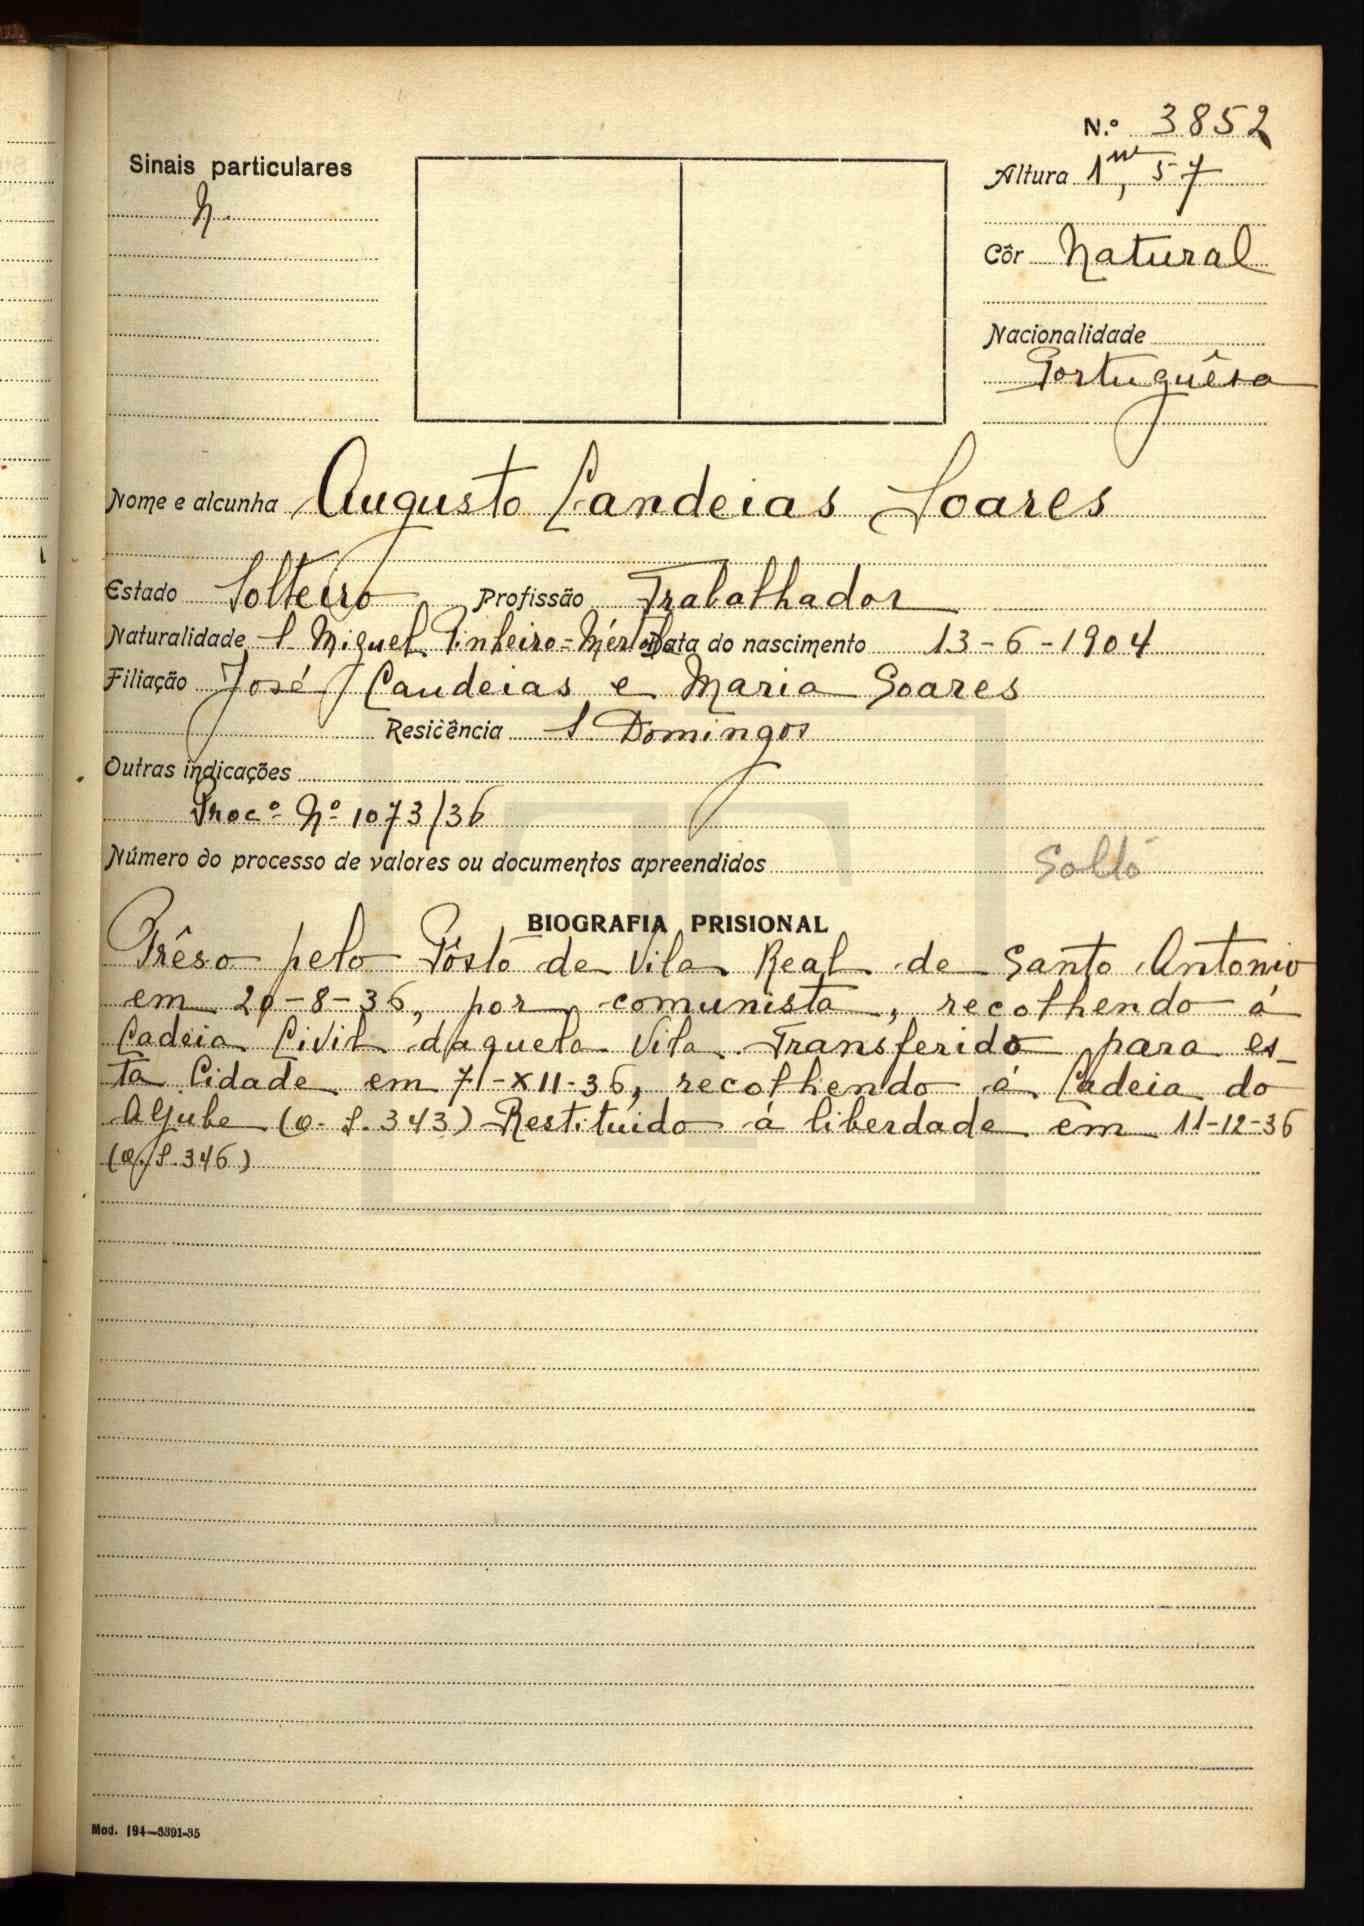 N.º 3852
Sinais particulares
N.
Altura 1m,57
Côr Natural
Nacionalidade
Portuguêsa
Nome e alcunha Augusto Candeias Soares
Estado Solteiro Profissão Trabalhador
Naturalidade S. Miguel Pinheiro=Mértola Data do nascimento 13-6-1904
Filiação José Candeias e Maria Soares
Residência S. Domingos
Outras indicações
Procº Nº 1073/36
Número do processo de valores ou documentos apreendidos Soltó
BIOGRAFIA PRISIONAL
Prêso pelo Pôsto de Vila Real de Santo Antonio
em 20-8-36, por comunista, recolhendo á
Cadeia Civil daquela Vila. Transferido para es-
ta Cidade em 7-XII-36, recolhendo á Cadeia do
Aljube (O.S.343) Restituido á liberdade em 11-12-36
(O.S.346)
Mod. 194—3391-35